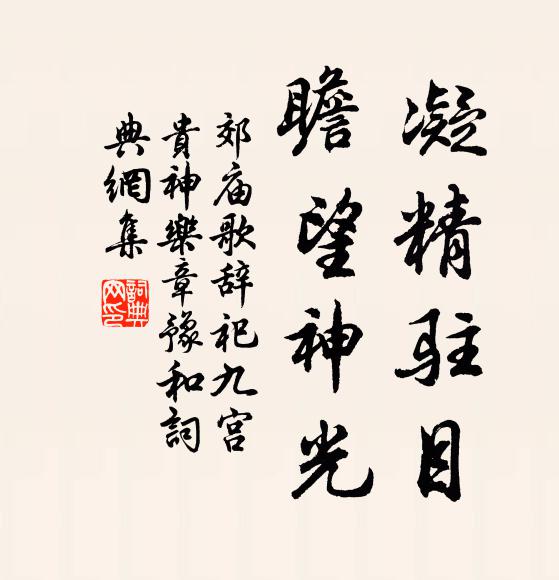 凝精駐目
瞻望神光
郊庙歌辞祀九宫
貴神樂章豫和詞
典網集
詞典
网印